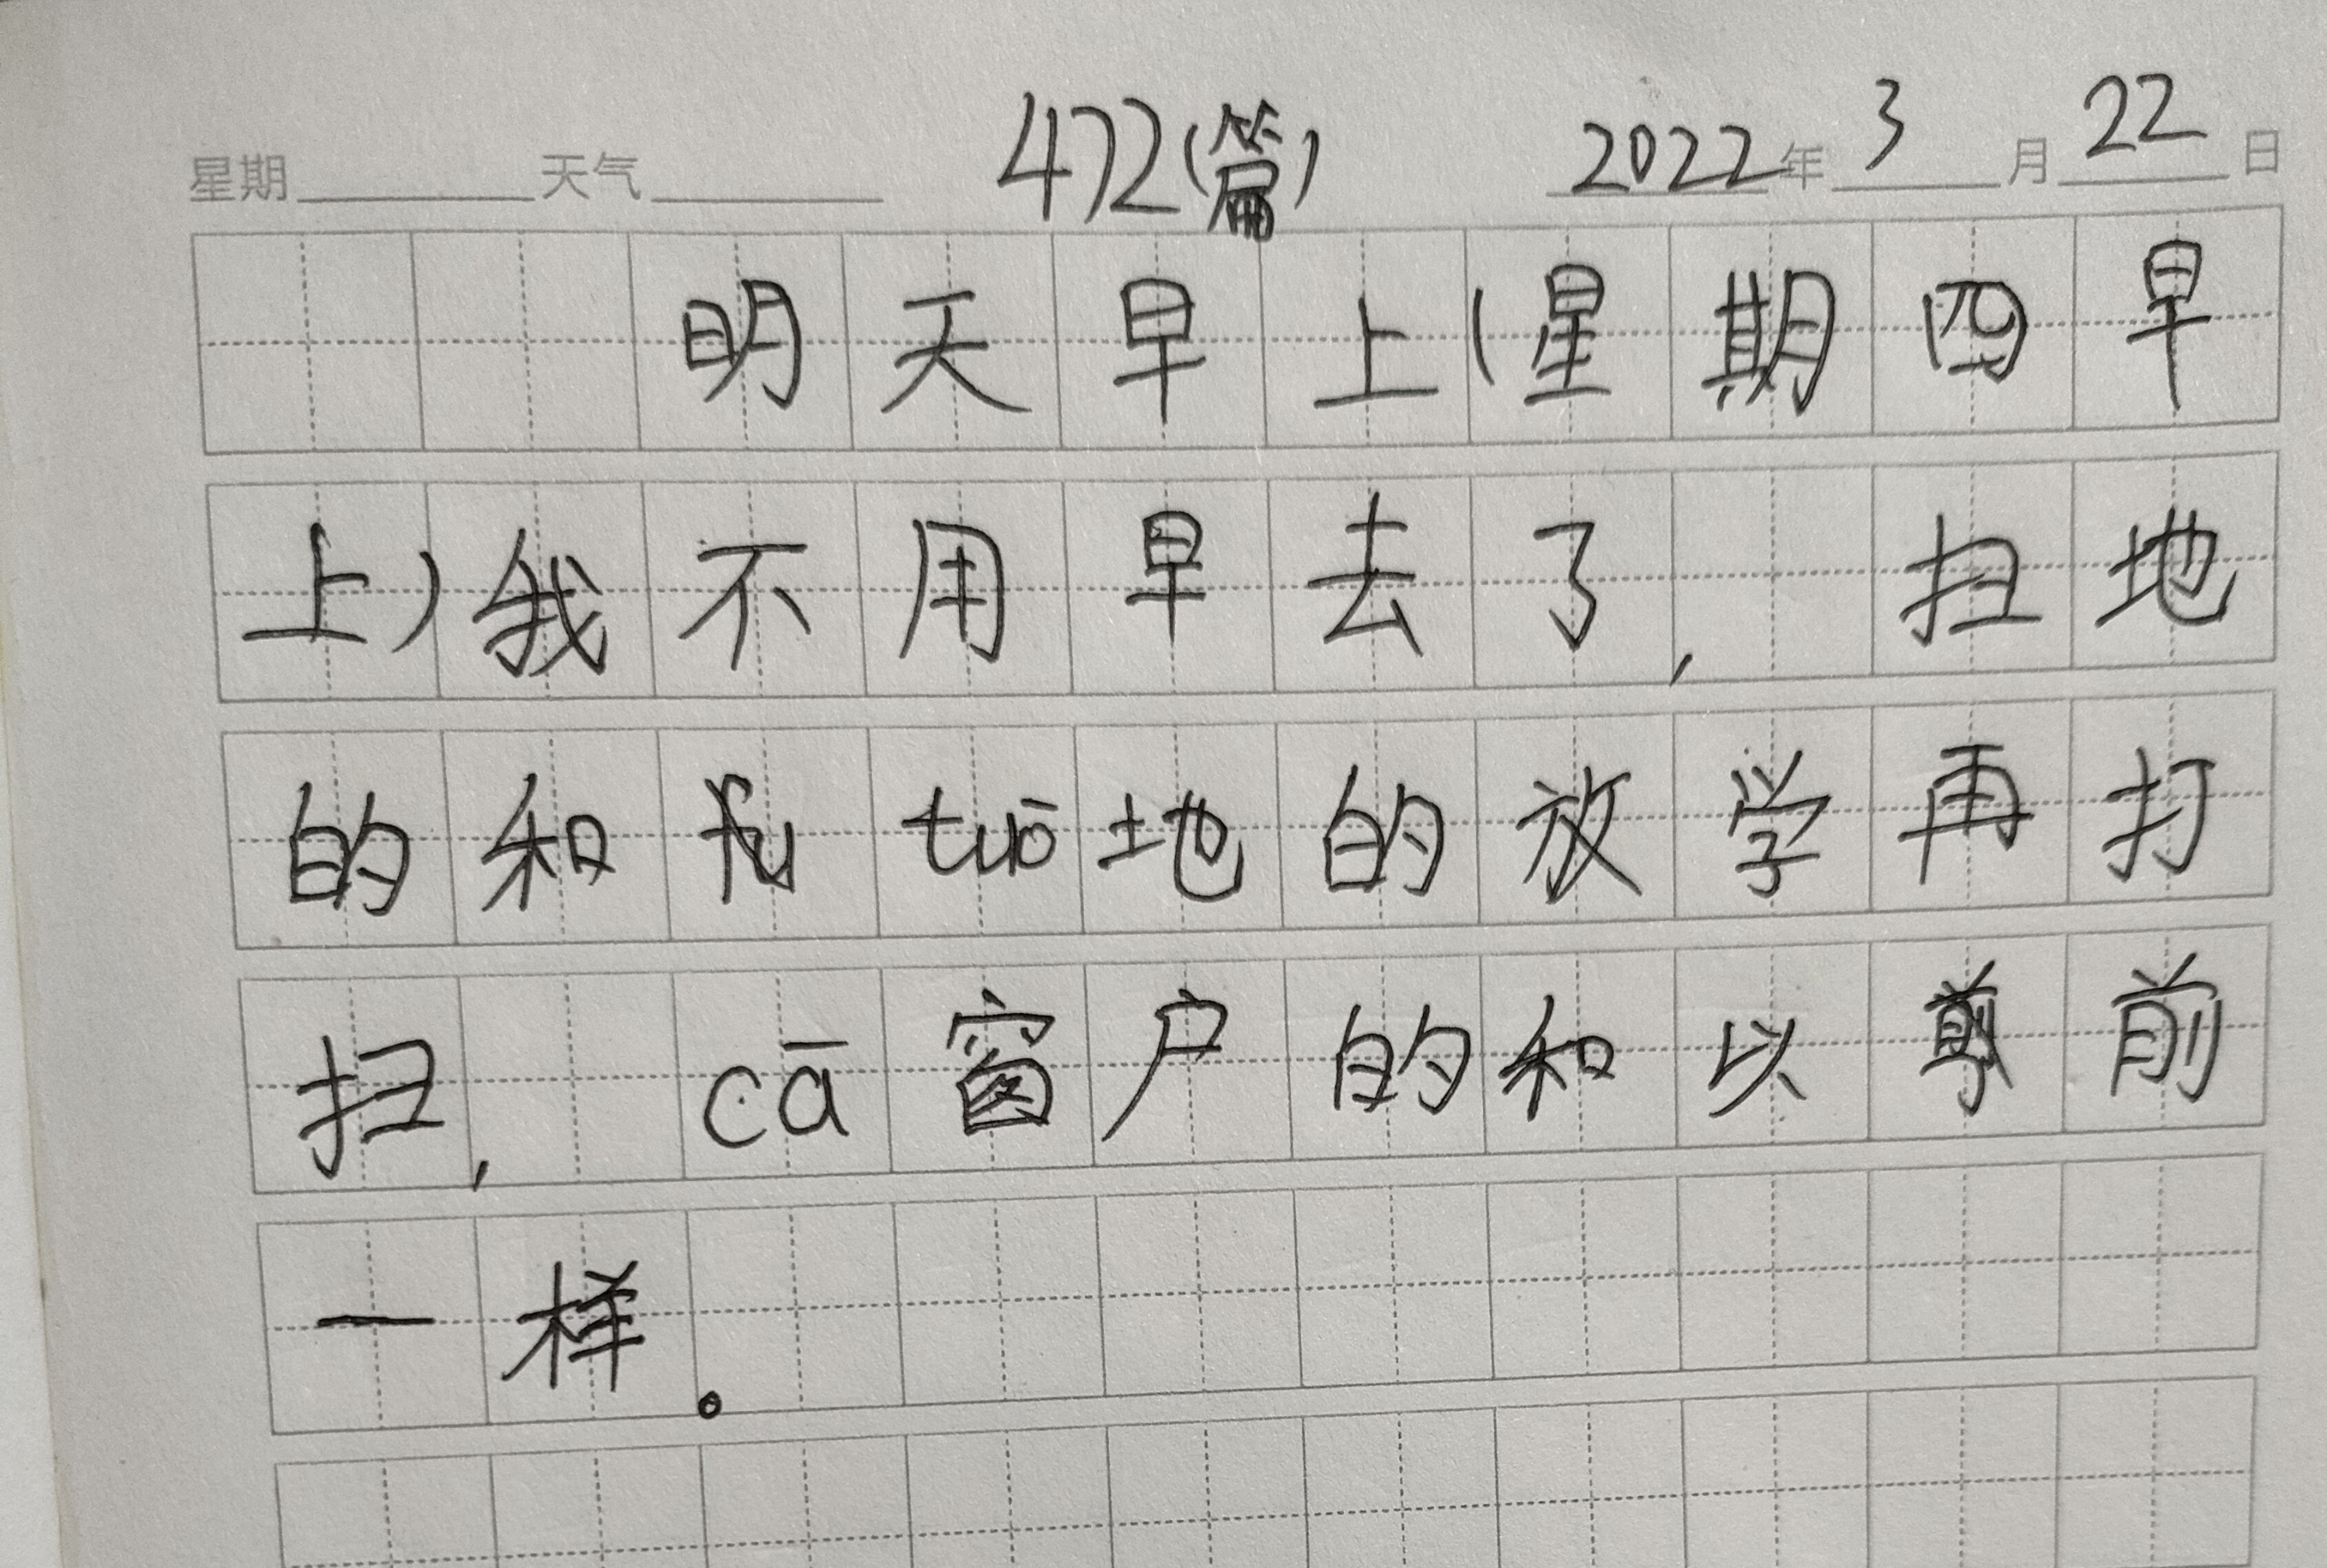 星期 天气 472(篇) 2022年3月22日
明天早上(星期四早
上)我不用早去了,扫地
的和tuō地的放学再打
扫,cā窗户的和以前
一样。